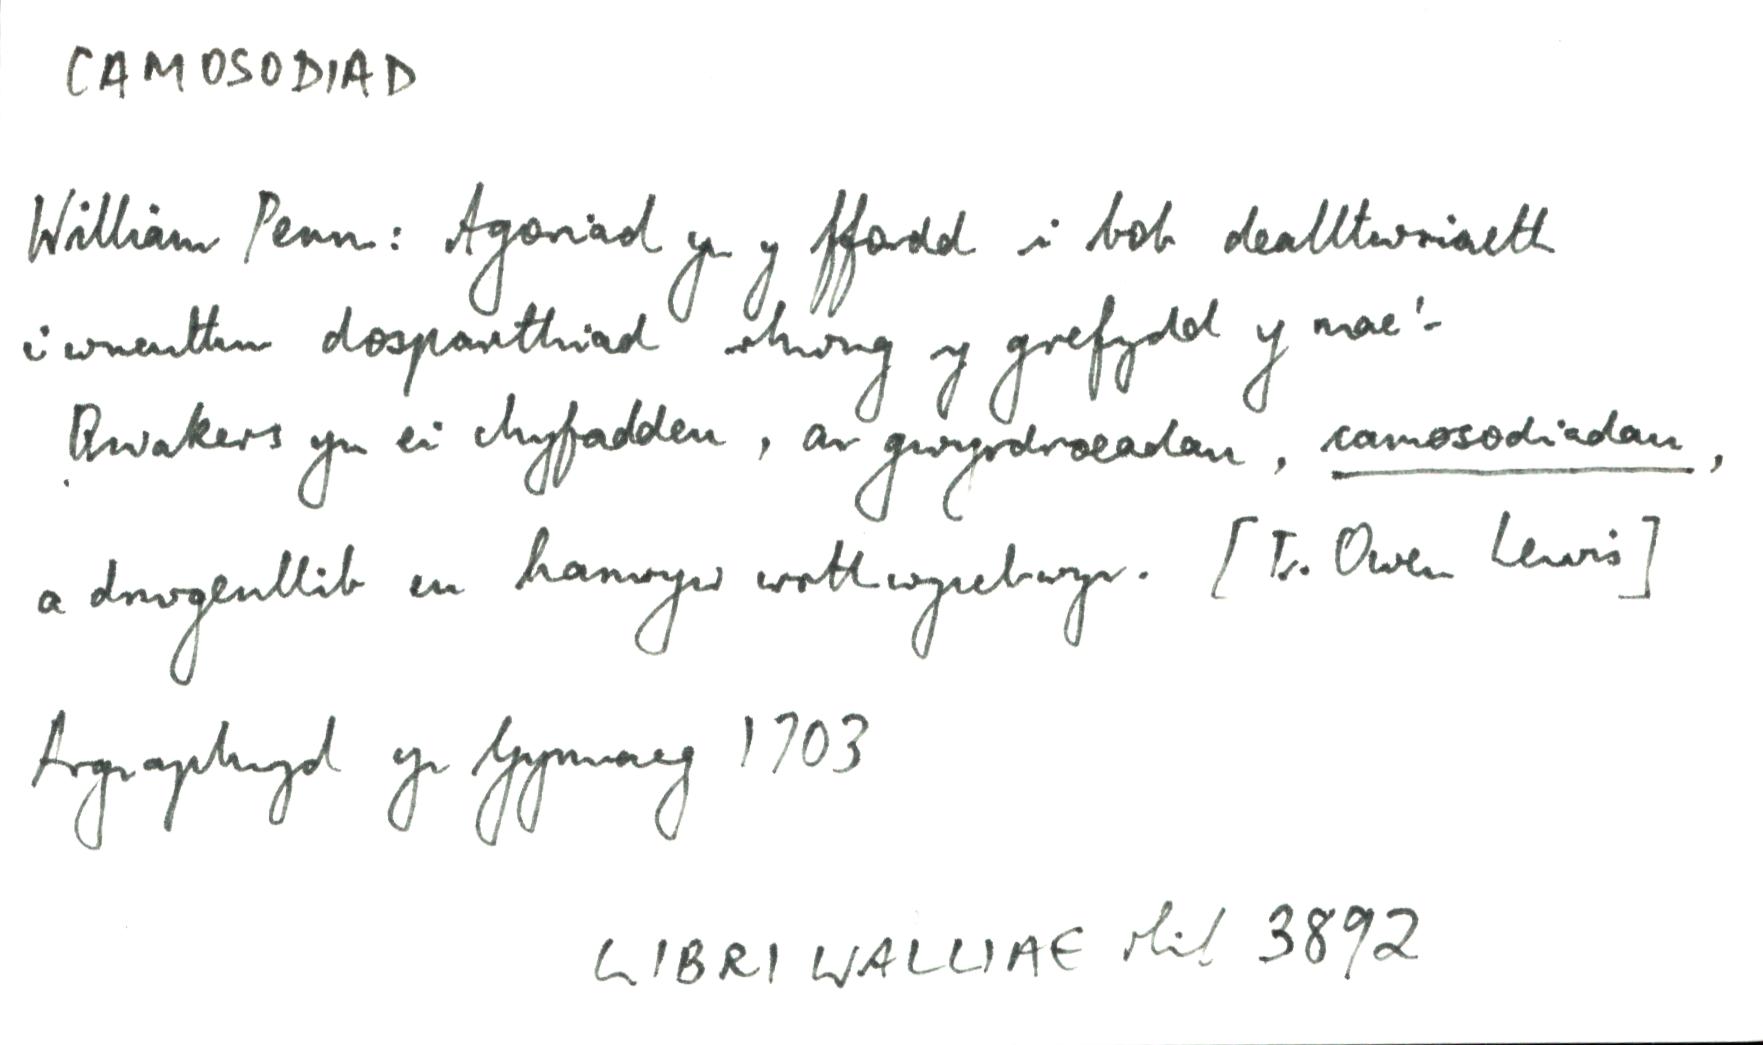 CAMOSODIAD
William Penn: Agoriad yn y ffordd i bob dealltwriaeth
i wneuthur dosparthiad rhwng y grefydd y mae'r
Qwakers yn ei chyfadden, ar gwyrdroeadau, camosodiadau,
a drwgenllib eu hamryw wrthwynebwyr. [Tr. Owen Lewis]
Argraphwyd yn Gymraeg 1703
LIBRI WALLIAE rhif 3892